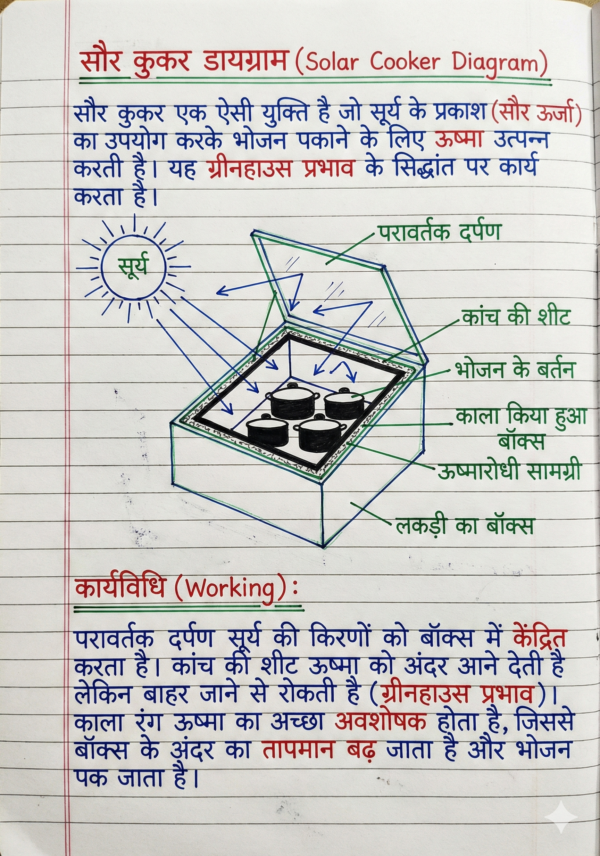 सौर कुकर डायग्राम (Solar Cooker Diagram)
सौर कुकर एक ऐसी युक्ति है जो सूर्य के प्रकाश (सौर ऊर्जा)
का उपयोग करके भोजन पकाने के लिए ऊष्मा उत्पन्न
करती है। यह ग्रीनहाउस प्रभाव के सिद्धांत पर कार्य
करता है।
सूर्य
परावर्तक दर्पण
कांच की शीट
भोजन के बर्तन
काला किया हुआ
बॉक्स
ऊष्मारोधी सामग्री
लकड़ी का बॉक्स
कार्यविधि (Working):
परावर्तक दर्पण सूर्य की किरणों को बॉक्स में केंद्रित
करता है। कांच की शीट ऊष्मा को अंदर आने देती है
लेकिन बाहर जाने से रोकती है (ग्रीनहाउस प्रभाव)।
काला रंग ऊष्मा का अच्छा अवशोषक होता है, जिससे
बॉक्स के अंदर का तापमान बढ़ जाता है और भोजन
पक जाता है।